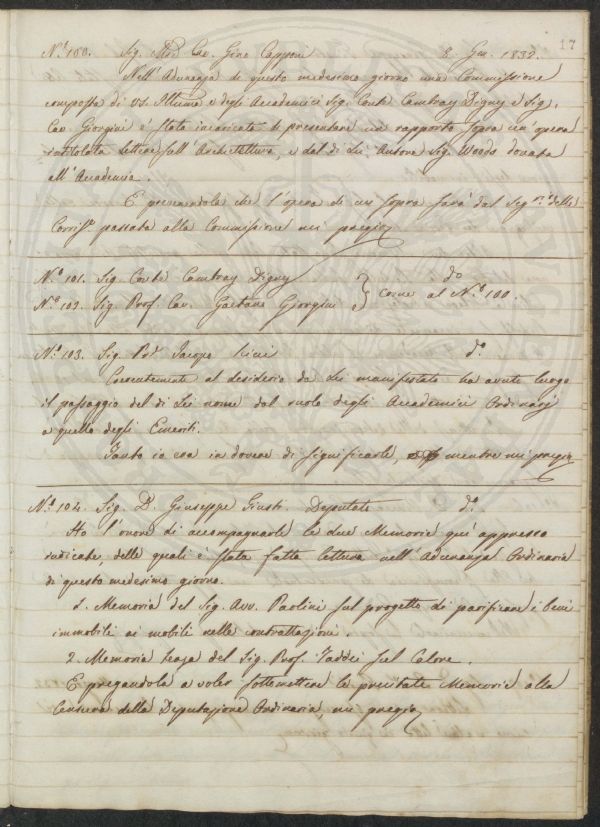 17
N.° 100. Sig. Mse. Cav. Gino Capponi 8. Gen. 1832.
Nell'Adunanza di questo medesimo giorno una Commissione
composta di VS. Illuma. e degli Accademici Sig. Conte Cambray Digny e Sig.
Cav. Giorgini è stata incaricata di presentare un rapporto sopra un'opera
intitolata Lettere sull'Architettura, e dal di Lei Autore Sig. Woods donata
all'Accademia.
E prevenendola che l'opera di cui sopra sarà dal Seg.rio delle
Corrisp.e passata alla Commissione mi pregio
N.° 101. Sig. Conte Cambray Digny
N.° 102. Sig. Prof. Cav. Gaetano Giorgini } come al N.° 100. d.°
N.° 103. Sig. Jacopo Ricci d.°
Coerentemente al desiderio da Lei manifestato ha avuto luogo
il passaggio del di Lei nome dal ruolo degli Accademici Ordinarj
a quello degli Emeriti.
Tanto io era in dovere di significarle, mentre mi pregio
N.° 104. Sig. D. Giuseppe Giusti Deputato d.°
Ho l'onore di accompagnarle le due Memorie qui appresso
indicate, delle quali è stata fatta lettura nell'Adunanza Ordinaria
di questo medesimo giorno.
1. Memoria del Sig. Avv. Paolini sul progetto di parificare i beni
immobili ai mobili nelle contrattazioni.
2. Memoria terza del Sig. Prof. Taddei sul Calore.
E pregandola a voler sottomettere le precitate Memorie alla
Censura della Deputazione Ordinaria mi pregio